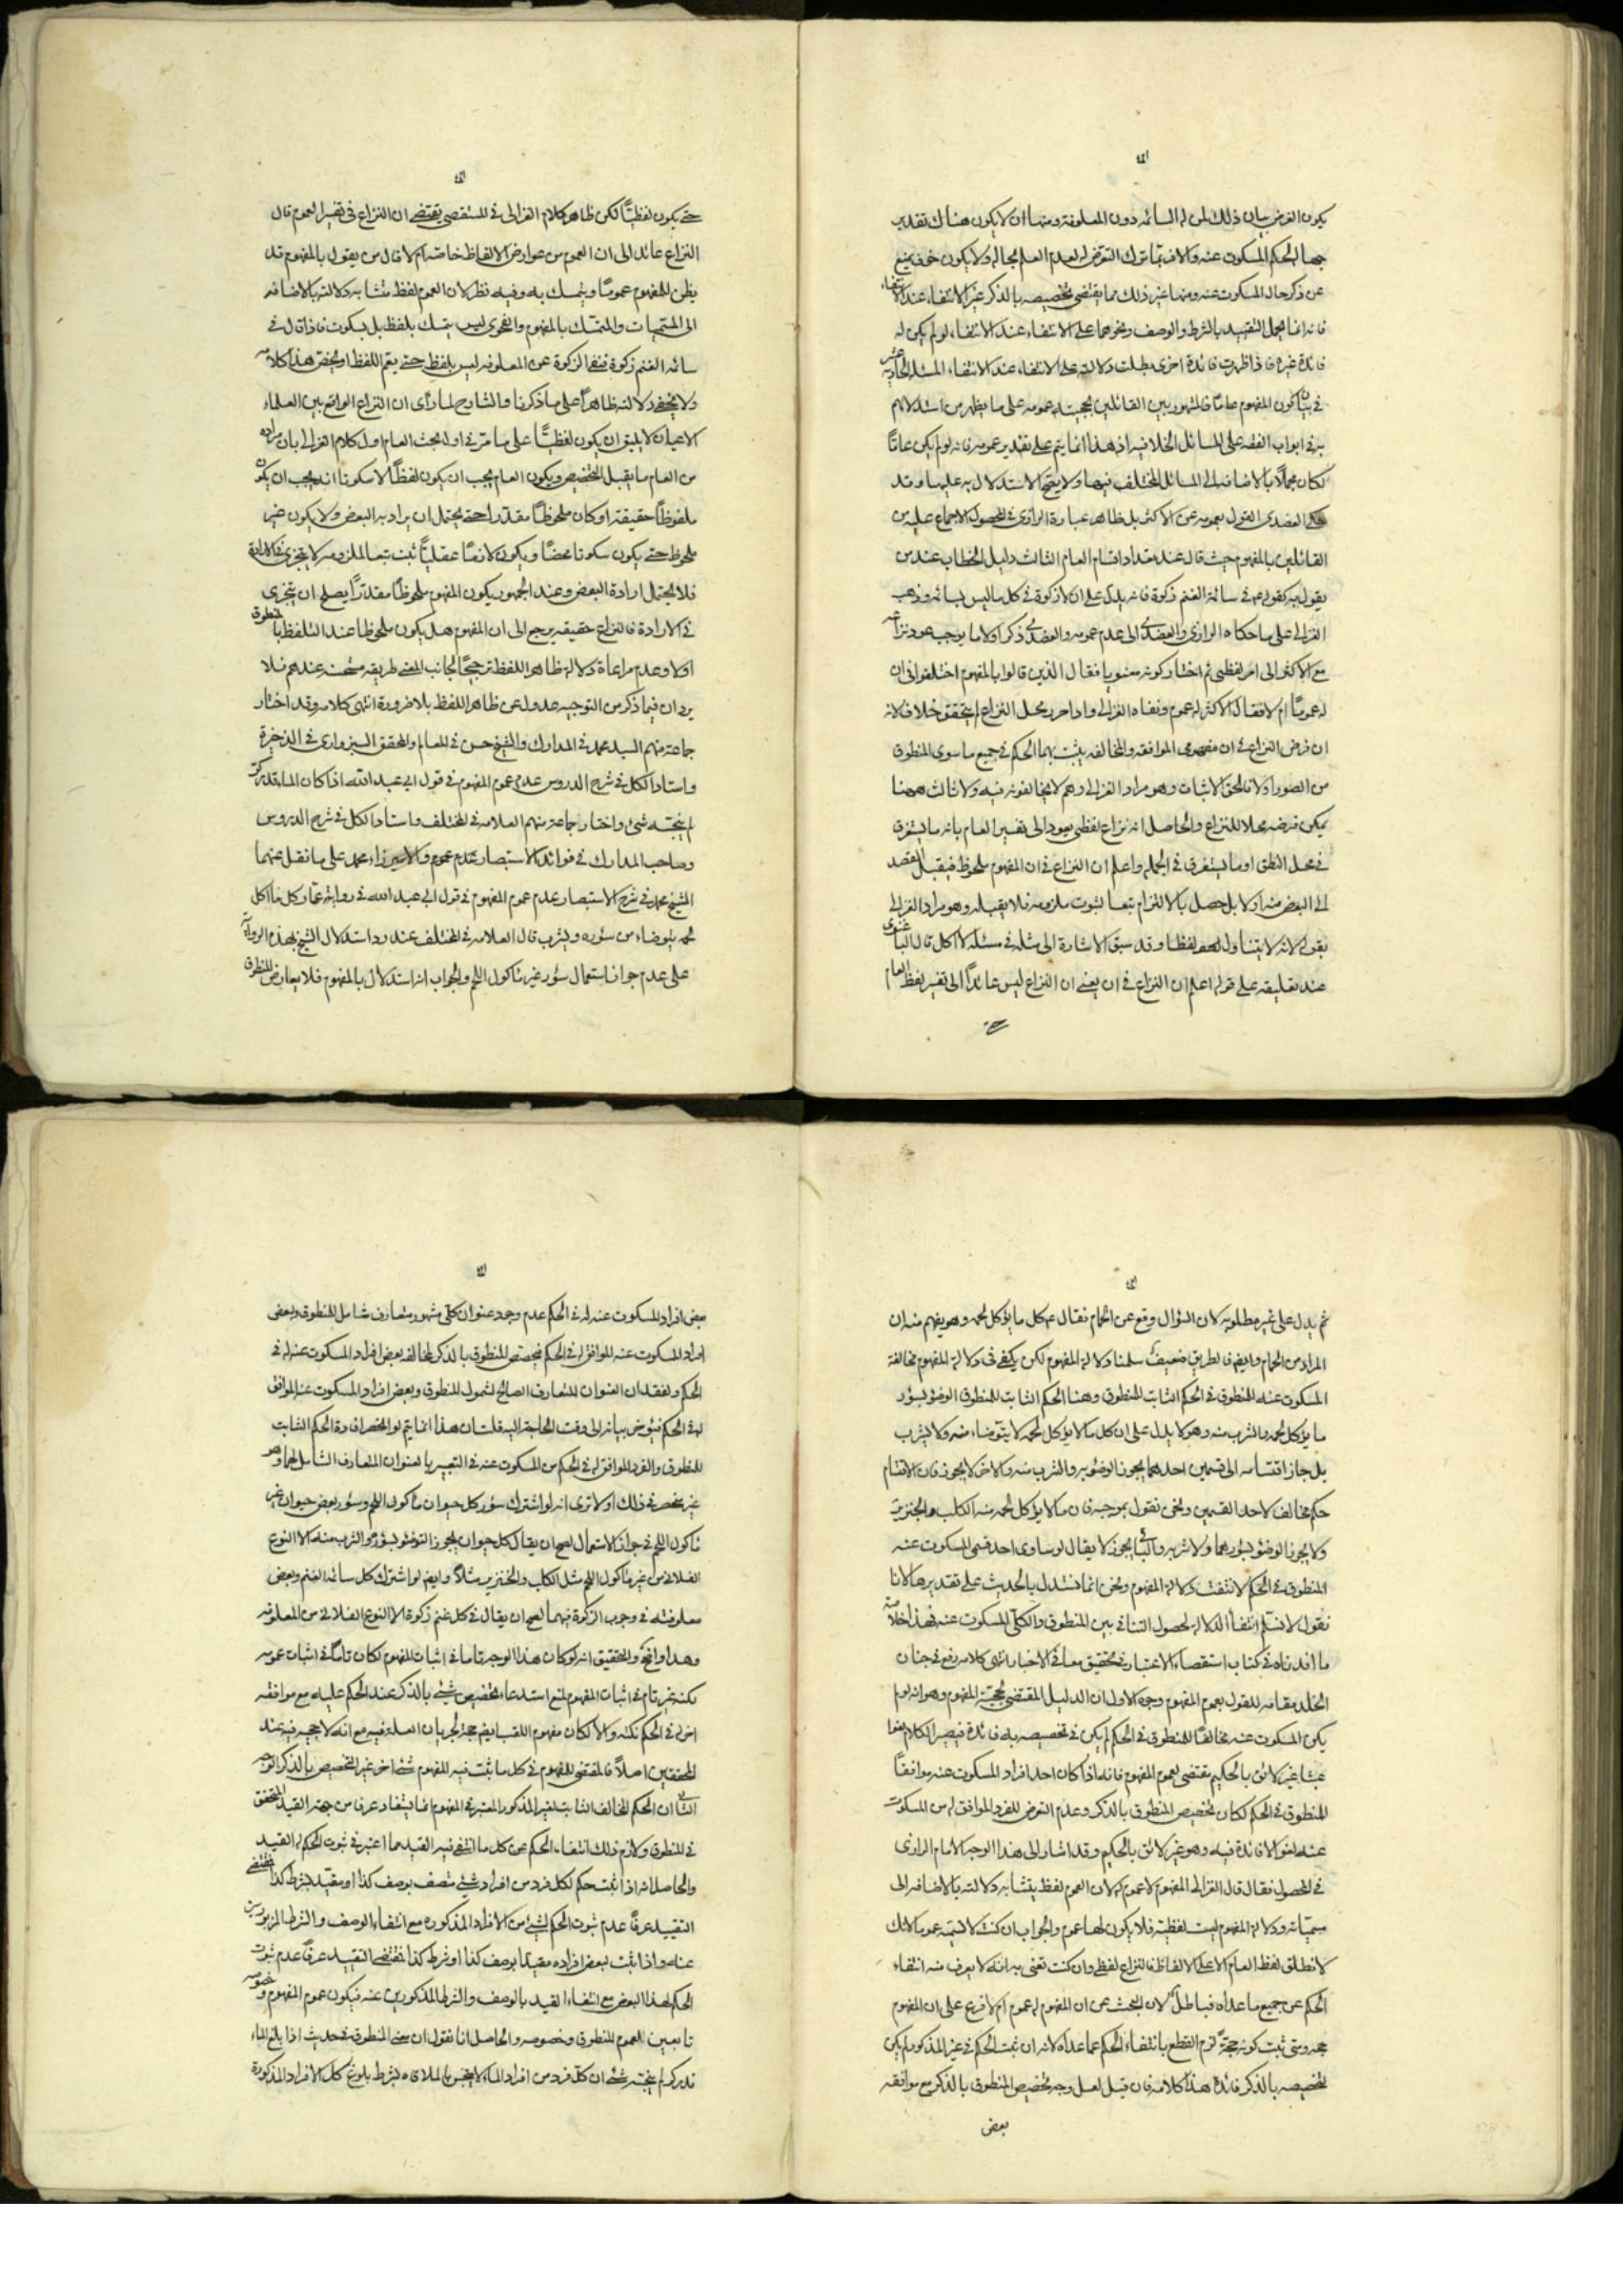 يكون الغرض بيان ذلك لمن له السائمه دون المعلوفة ومنها ان لا يكون هناك تقدير
جهالة الحكم المسكوت عنه والا فربما ترك التعرض له لعدم العلم بحاله ولا يكون خوف يمنع
عن ذكر حال المسكوت عنه ومنها غير ذلك مما يقتضى تخصيصه بالذكر غير الانتفاء عند الانتفاء
فانه انما يحمل التقييد بالشرط والوصف ونحوهما على الانتفاء عند الانتفاء لو لم يكن له
فائدة غيره فاذا ظهرت فائدة اخرى بطلت دلالته على الانتفاء عند الانتفاء المسئلة الحاديه عشر
فى بيان كون المفهوم عاما فالمشهور بين القائلين بحجيته عمومه على ما يظهر من استدلالهم
به فى ابواب الفقه على المسائل الخلافيه اذ هذا انما يتم على تقدير عمومه فانه لو لم يكن عامّا
لكان مجملًا بالاضافه الى المسائل المختلف فيها ولا يصح الاستدلال به عليها وقد
العضدى القول بعمومه عن الاكثر بل ظاهر عبارة الرازى فى المحصول الاجماع عليه من
القائلين بالمفهوم حيث قال عند تعداد اقسام العام الثالث دليل الخطاب عند من
يقول به كقوله ع فى سائمة الغنم زكوة فانه يدل على ان لا زكوة فى كل ما ليس بسائمه وذهب
الغزالى على ما حكاه الرازى والعضدى الى عدم عمومه والعضدى ذكر اولا ما يوجب عود نزاعه
مع الاكثر الى امر لفظى ثم اختار كونه معنويا فقال الذين قالوا بالمفهوم اختلفوا فى ان
له عمومًا ام لا فقال الاكثر له عموم ونفاه الغزالى واذا حرر محل النزاع لم يتحقق خلاف لانه
ان فرض النزاع فى ان مفهومى الموافقه والمخالفه يثبت بهما الحكم فى جميع ما سوى المنطوق
من الصور اولا فالحق الاثبات وهو مراد الغزالى وهم لا يخالفونه فيه ولا ثالث ههنا
يمكن فرضه محلا للنزاع والحاصل انه نزاع لفظى يعود الى تفسير العام بانه ما يستغرق
فى محل النطق او ما يستغرق فى الجمله واعلم ان النزاع فى ان المفهوم ملحوظ فيقبل القصد
الى البعض منه اولا بل حصل بالالتزام تبعا لثبوت ملزومه فلا يقبله وهو مراد الغزالى
بقوله لانه لا يتناوله لفظا وقد سبق الاشارة الى مثله فى مسئله لا اكل قال الباغنوى
عند تعليقه على قوله اعلم ان النزاع فى ان يعنى ان النزاع ليس عائداً الى تفسير لفظ العام
حتى
حتى يكون لفظيًّا لكن ظاهر كلام الغزالى فى المستقصى يقتضى ان النزاع فى تفسير العموم قال
النزاع عائد الى ان العموم من عوارض الالفاظ خاصه ام لا قال من يقول بالمفهوم قد
يظن للمفهوم عمومًا ويتمسك به وفيه نظر لان العموم لفظ تتشابه دلالته بالاضافه
الى المسميات والمتمسك بالمفهوم والفحوى ليس يتمسك بلفظ بل بسكوت فاذا قال فى
سائمه الغنم زكوة فنفى الزكوة عن المعلوفه ليس بلفظ حتى يعم اللفظ او يخص هذا كلامه
ولا يخفى دلالته ظاهراً على ما ذكرنا والشارح لما رأى ان النزاع الواقع بين العلماء
الاعيان لا يليق ان يكون لفظيًّا على ما مرّ فى اول بحث العام اول كلام الغزالى بان مراده
من العام ما يقبل التخصيص ويكون العام يجب ان يكون لفظًا لا سكوتا انه يجب ان يكون
ملفوظًا حقيقة او كان ملحوظًا مقدرا حتى يحتمل ان يراد به البعض ولا يكون غير
ملحوظ حتى يكون سكوتا محضًا ويكون لازمًا عقليًّا ثبت تبعا لملزومه لا يتجزى فى الارادة
فلا يحتمل ارادة البعض وعند الجمهور يكون المفهوم ملحوظًا مقدرًا يصلح ان يتجزى
فى الارادة فالنزاع حقيقه يرجع الى ان المفهوم هل يكون ملحوظا عند التلفظ بالمنطوق
اولا وعدم مراعاة دلالة ظاهر اللفظ ترجيحًا لجانب المعنى طريقه مستحسنه عندهم فلا
يرد ان فيما ذكر من التوجيه عدول عن ظاهر اللفظ بلا ضرورة انتهى كلامه وقد اختار
جماعة منهم السيد محمد فى المدارك والشيخ حسن فى المعالم والمحقق السبزوارى فى الذخيرة
واستاد الكل فى شرح الدروس عدم عموم المفهوم فى قول ابى عبد الله اذا كان الماء قدر كر
لم ينجسه شئ واختار جماعة منهم العلامه فى المختلف واستاد الكل فى شرح الدروس
وصاحب المدارك فى فوائد الاستبصار عدم عموم والاميرزا محمد على ما نقل عنهما
الشيخ محمد فى شرح الاستبصار عدم عموم المفهوم فى قول ابى عبد الله فى رواية عمار كل ما اكل
لحمه يتوضاء من سؤره ويشرب قال العلامه فى المختلف عند رد استدلال الشيخ بهذه الرواية
على عدم جواز استعمال سؤر غير ماكول اللحم والجواب انه استدلال بالمفهوم فلا يعارض المنطوق
ثم يدل على غير مطلوبه لان السؤال وقع عن الحمام فقال ع كل ما يؤكل لحمه وهو يفهم منه ان
المراد من الحمام وايضه فالطريق ضعيف سلمنا دلالة المفهوم لكن يكفى فى دلالة المفهوم مخالفة
المسكوت عنه للمنطوق فى الحكم الثابت للمنطوق وهنا الحكم الثابت للمنطوق الوضوء بسؤر
ما يؤكل لحمه والشرب منه وهو لا يدل على ان كل ما لا يؤكل لحمه لا يتوضاء منه ولا يشرب
بل جاز اقتسامه الى قسمين احدهما يجوز الوضوء به والشرب منه والاخر لا يجوز فان الاقتسام
حكم مخالف لاحد القسمين ونحن نقول بموجبه فان ما لا يؤكل لحمه منه الكلب والخنزير
ولا يجوز الوضوء بسؤرهما ولا شربه والباقى يجوز لا يقال لو ساوى احد قسمى المسكوت عنه
المنطوق فى الحكم لانتفت دلالة المفهوم ونحن انما نستدل بالحديث على تقديرها لانا
نقول لا نسلم انتفاء الدلالة لحصول التنافى بين المنطوق والكلى المسكوت عنه فهذا خلاصة
ما افدناه فى كتاب استقصاء الاعتبار فى تحقيق معانى الاخبار انتهى كلامه رفع فى جنان
الخلد مقامه للقول بعموم المفهوم وجوه الاول ان الدليل المقتضى لحجية المفهوم وهو انه لو لم
يكن المسكوت عنه مخالفًا للمنطوق فى الحكم لم يكن فى تخصيصه به فائدة فيصير الكلام لغوا
عبثا غير لائق بالحكيم يقتضى لعموم المفهوم فانه اذا كان احد افراد المسكوت عنه موافقًا
للمنطوق فى الحكم لكان تخصيص المنطوق بالذكر وعدم التعرض للفرد الموافق له من المسكوت
عنه لغوا لا فائدة فيه وهو غير لائق بالحكيم وقد اشار الى هذا الوجه الامام الرازى
فى المحصول فقال قال الغزالى المفهوم لا عموم له لان العموم لفظ يتشابه دلالته بالاضافه الى
مسمياته ودلالة المفهوم ليست لفظية فلا يكون لها عموم والجواب ان كنت لا تسميه عموما لانك
لا تطلق لفظ العام الا على الالفاظ فالنزاع لفظى وان كنت تعنى به انه لا يعرف منه انتفاء
الحكم عن جميع ما عداه فباطل لان البحث عن ان المفهوم له عموم ام لا فرع على ان المفهوم
حجه ومتى ثبت كونه حجة لزم القطع بانتفاء الحكم عما عداه لانه ان ثبت الحكم فى غير المذكور لم يكن
لتخصيصه بالذكر فائدة هذا كلامه فان قيل لعل وجه تخصيص المنطوق بالذكر مع موافقه
بعض
بعض افراد المسكوت عنه له فى الحكم عدم وجود عنوان كلى مشهور متعارف شامل للمنطوق وبعض
افراد المسكوت عنه الموافق له فى الحكم فيخصص المنطوق بالذكر لمخالفه بعض افراد المسكوت عنه له فى
الحكم ولفقدان العنوان المتعارف الصالح لشمول المنطوق وبعض افراد المسكوت عنه الموافق
له فى الحكم فيفوض بيانه الى وقت الحاجة اليه قلت ان هذا انما يتم لو انحصر افادة الحكم الثابت
للمنطوق والفرد الموافق له فى الحكم من المسكوت عنه فى التعبير بالعنوان المتعارف الشامل لهما وهو
غير منحصر فى ذلك اولا ترى انه لو اشترك سؤر كل حيوان ماكول اللحم وسؤر بعض حيوان غير
ماكول اللحم فى جواز الاستعمال لصح ان يقال كل حيوان يجوز التوضؤ بسؤره والشرب منه الا النوع
الفلانى من غير ماكول اللحم مثل الكلب والخنزير مثلًا وايضه لو اشترك كل سائمه الغنم وبعض
معلوفته فى وجوب الزكوة فيهما لصح ان يقال فى كل غنم زكوة الا النوع الفلانى من المعلوفه
وهذا واضح والتحقيق انه لو كان هذا الوجه تاما فى اثبات المفهوم لكان تامًّا فى اثبات عمومه
لكنه غير تام فى اثبات المفهوم لمنع استدعاء تخصيص شئ بالذكر عند الحكم عليه مع موافقه
اخر له فى الحكم نكته والا لكان مفهوم اللقب ايضه حجة لجريان العلة فيه مع انه لا حجيه فيه عند
المحققين اصلًا فالمقتضى للمفهوم فى كل ما ثبت فيه المفهوم شئ اخر غير التخصيص بالذكر الوجه
الثانى ان الحكم المخالف الثابت لغير المذكور المعتبر فى المفهوم انما يستفاد عرفا من جهة القيد المتحقق
فى المنطوق ولازم ذلك انتفاء الحكم عن كل ما انتفى فيه القيد مما اعتبر فى ثبوت الحكم له القيد
والحاصل انه اذا ثبت حكم لكل فرد من افراد شئ متصف بوصف كذا او مقيد بشرط كذا فمقتضى
التقييد عرفًا عدم ثبوت الحكم لشئ من الافراد المذكوره مع انتفاء الوصف والشرط المزبورين
عنه واذا ثبت لبعض افراده مقيدًا بوصف كذا او بشرط كذا اقتضى التقييد عرفًا عدم ثبوت
الحكم لهذا البعض مع انتفاء القيد بالوصف والشرط المذكورين عنه فيكون عموم المفهوم وخصوصه
تابعين لعموم المنطوق وخصوصه والحاصل انا نقول ان معنى المنطوق فى حديث اذا بلغ الماء
قدر كر لم ينجسه شئ ان كل فرد من افراد الماء لا ينجس بالملاقاه بشرط بلوغ كل الافراد المذكورة